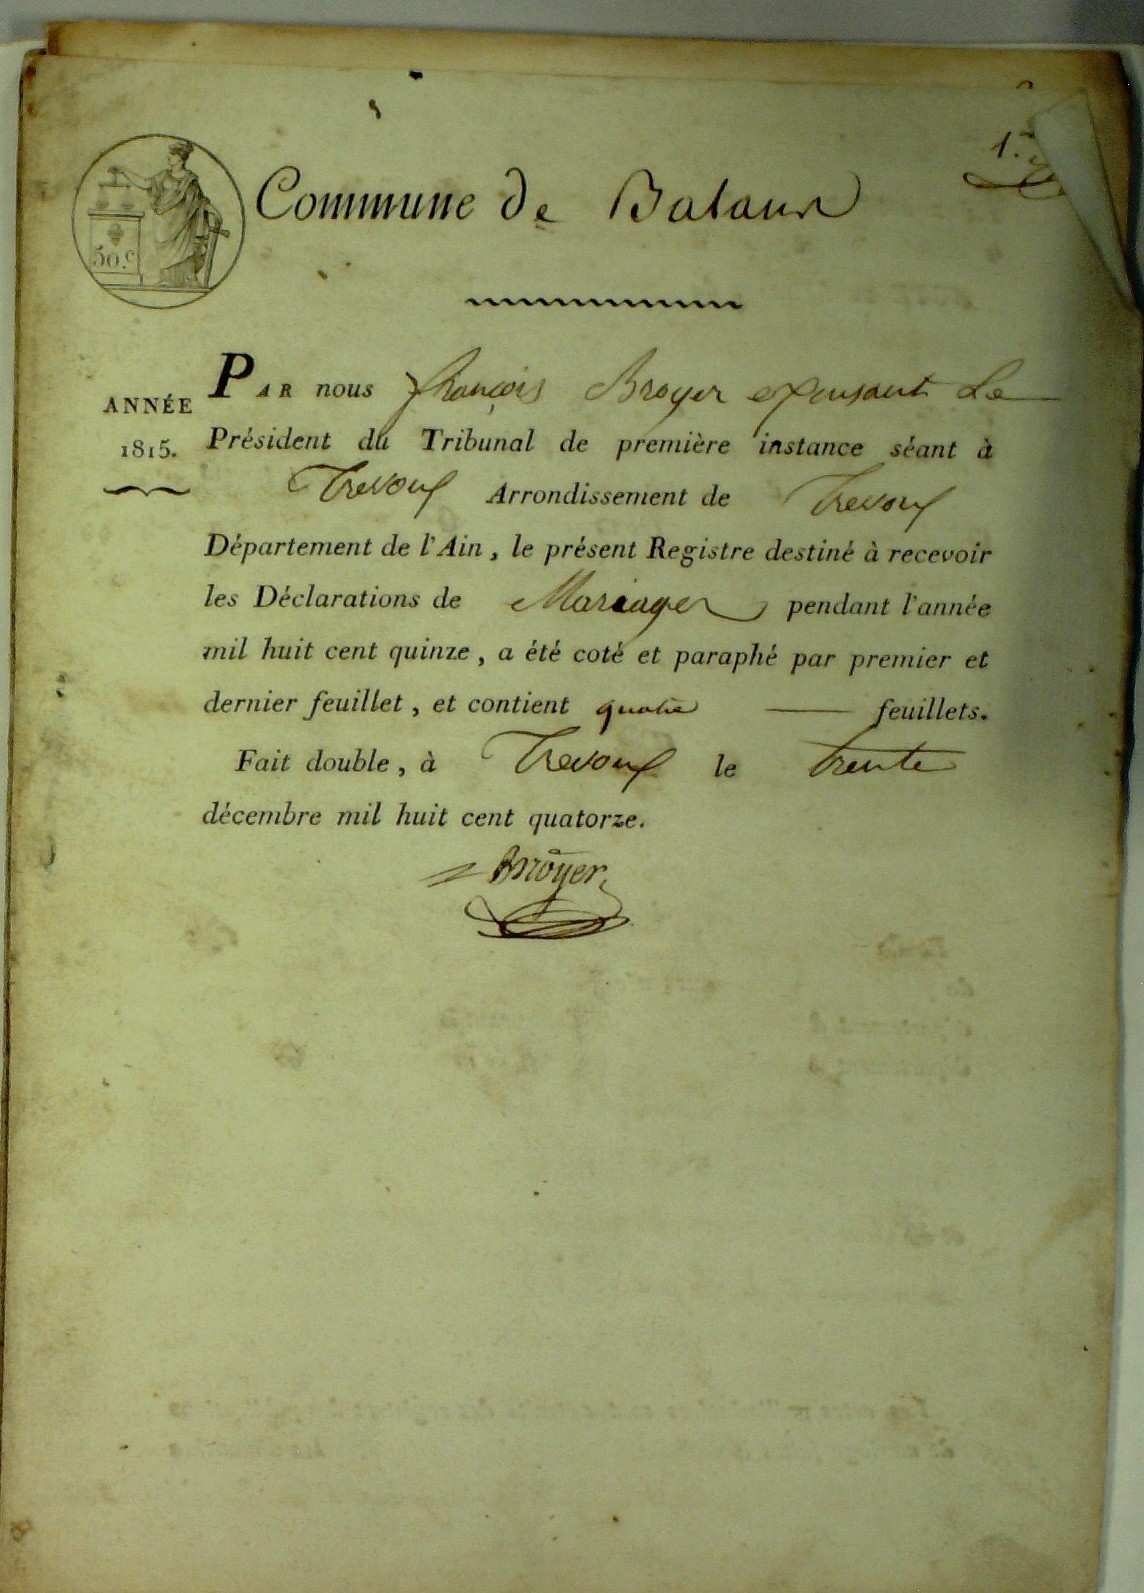 1.
50.C
Commune de Balaux
ANNÉE
1815.
PAR nous françois Broyer Le
Président du Tribunal de première instance séant à
Trevoux Arrondissement de Trevoux
Département de l'Ain, le présent Registre destiné à recevoir
les Déclarations de Mariages pendant l'année
mil huit cent quinze, a été coté et paraphé par premier et
dernier feuillet, et contient quatre feuillets.
Fait double, à Trevoux le trente
décembre mil huit cent quatorze.
Broÿer